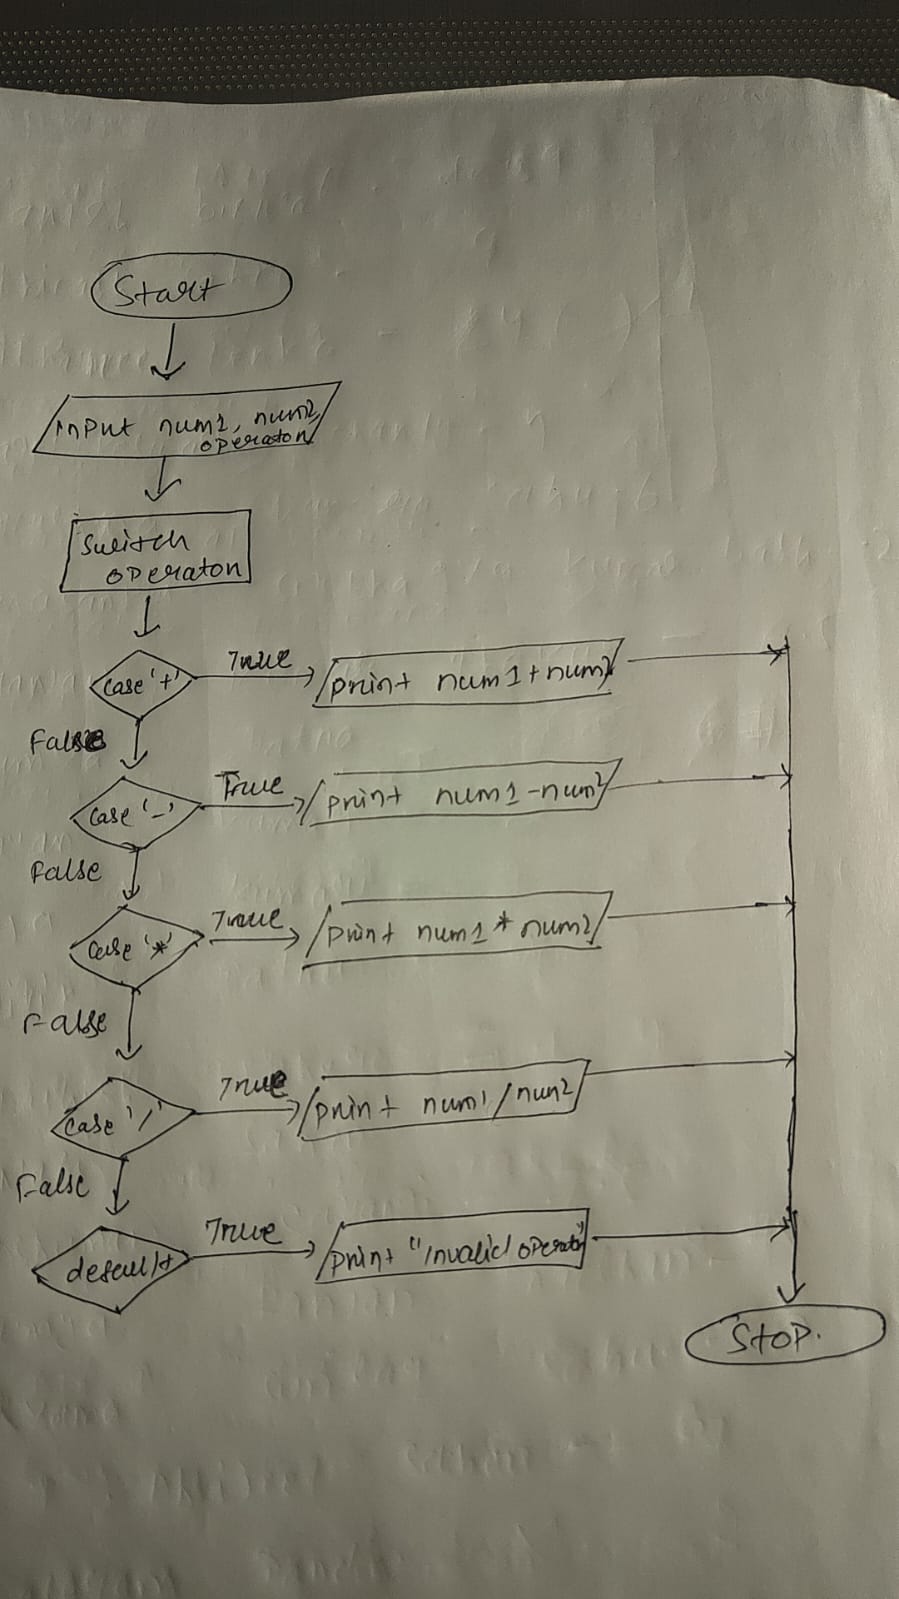 Start
input num1, num2,
operator
Switch
operator
case '+'
True
print num1+num2
False
case '-'
True
print num1-num2
False
case '*'
True
print num1 * num2
False
case '/'
True
print num1/num2
False
default
True
print "Invalid operator"
Stop.